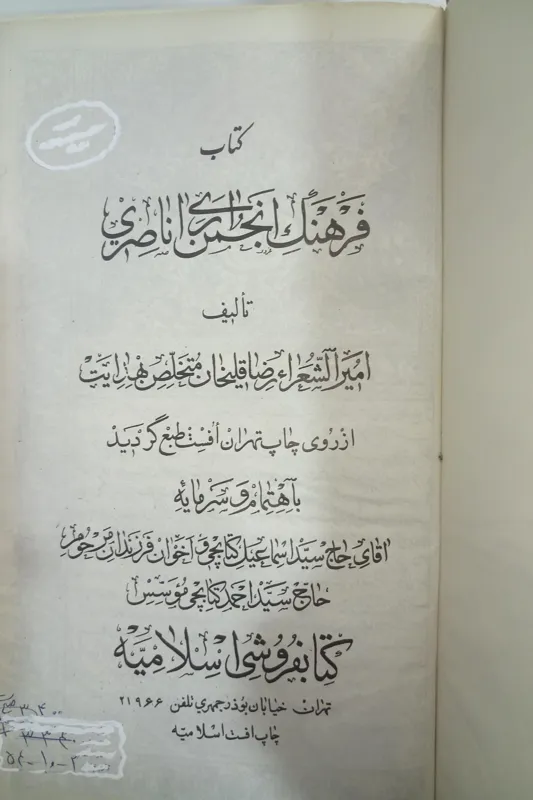 کتاب
فرهنگ انجمن آرای ناصری
تألیف
امیرالشعراء رضاقلیخان متخلص بهدایت
از روی چاپ تهران افست طبع گردید
باهتمام و سرمایه
آقای حاج سید اسماعیل کتابچی و اخوان فرزندان مرحوم
حاج سید احمد کتابچی مؤسس
کتابفروشی اسلامیه
تهران خیابان بوذرجمهری تلفن ۲۱۹۶۶
چاپ افست اسلامیه